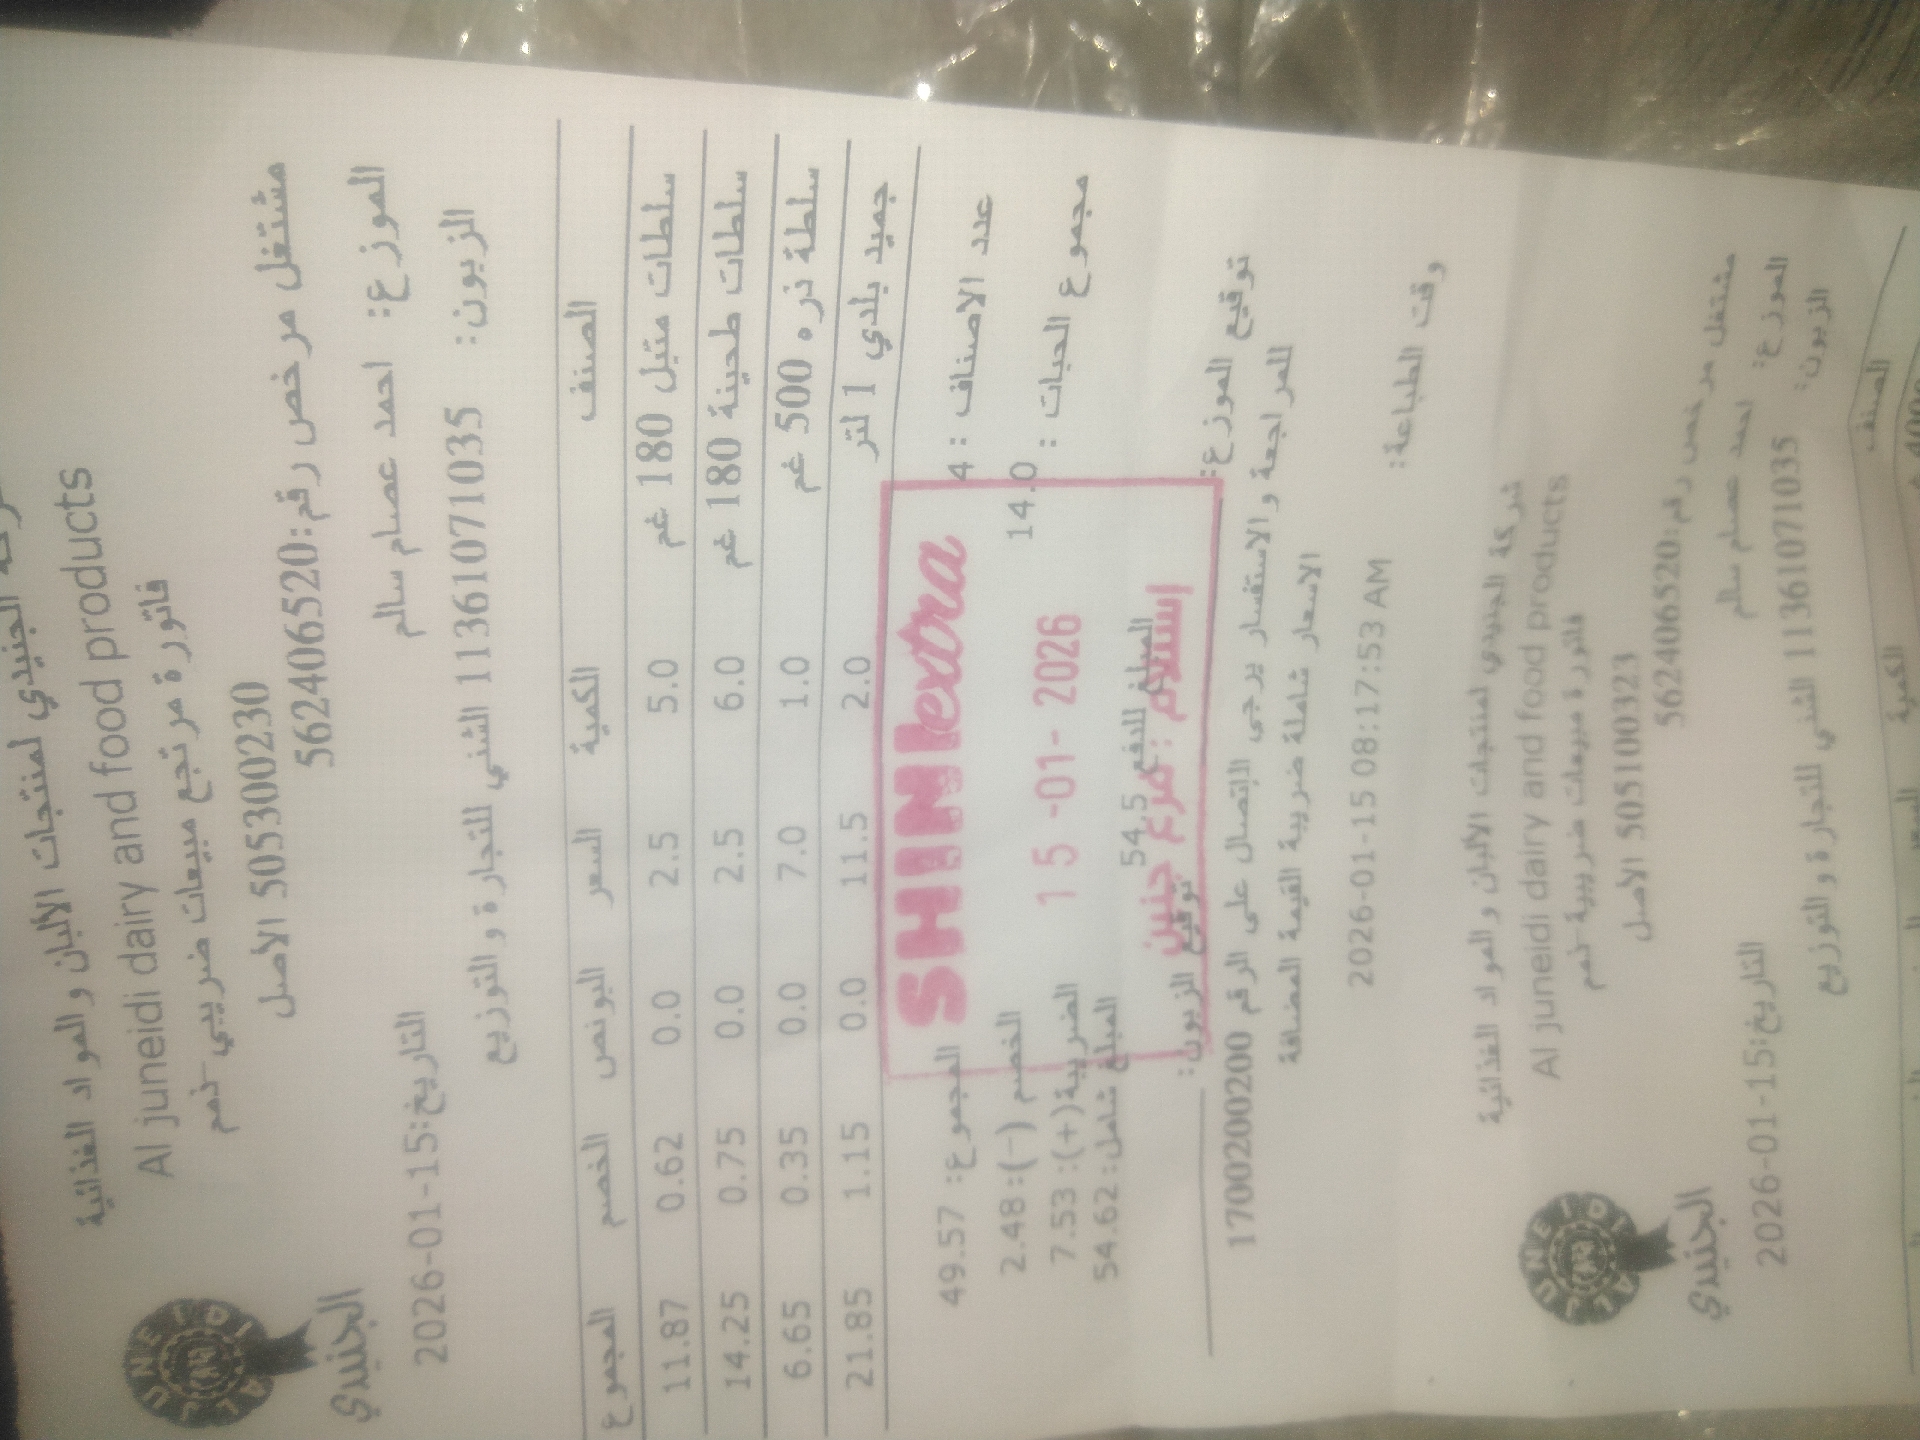 شركة الجنيدي لمنتجات الألبان والمواد الغذائية
Al juneidi dairy and food products
فاتورة مرتجع مبيعات ضريبي-ذمم
505300230 الاصل
مشتغل مرخص رقم:562406520
JUNEIDI
الجنيدي
الموزع: احمد عصام سالم
التاريخ:2026-01-15
الزبون: 11361071035 الشني للتجارة والتوزيع
الصنف الكمية السعر البونص الخصم المجموع
سلطات متبل 180 غم 5.0 2.5 0.0 0.62 11.87
سلطات طحينة 180 غم 6.0 2.5 0.0 0.75 14.25
سلطة ذره 500 غم 1.0 7.0 0.0 0.35 6.65
جميد بلدي 1 لتر 2.0 11.5 0.0 1.15 21.85
عدد الاصناف : 4 المجموع: 49.57
مجموع الحبات : 14.0 الخصم (-): 2.48
الضريبة(+): 7.53
المبلغ للدفع 54.5 المبلغ شامل: 54.62
SHINI extra
15 -01- 2026
إستلام : فرع جنين
توقيع الموزع: توقيع الزبون:
للمراجعة والاستفسار يرجى الاتصال على الرقم 1700200200
الاسعار شاملة ضريبة القيمة المضافة
وقت الطباعة: 2026-01-15 08:17:53 AM
شركة الجنيدي لمنتجات الألبان والمواد الغذائية
Al juneidi dairy and food products
فاتورة مبيعات ضريبية-ذمم
505100323 الاصل
مشتغل مرخص رقم:562406520
JUNEIDI
الجنيدي
الموزع: احمد عصام سالم
التاريخ:2026-01-15
الزبون: 11361071035 الشني للتجارة والتوزيع
الصنف الكمية السعر